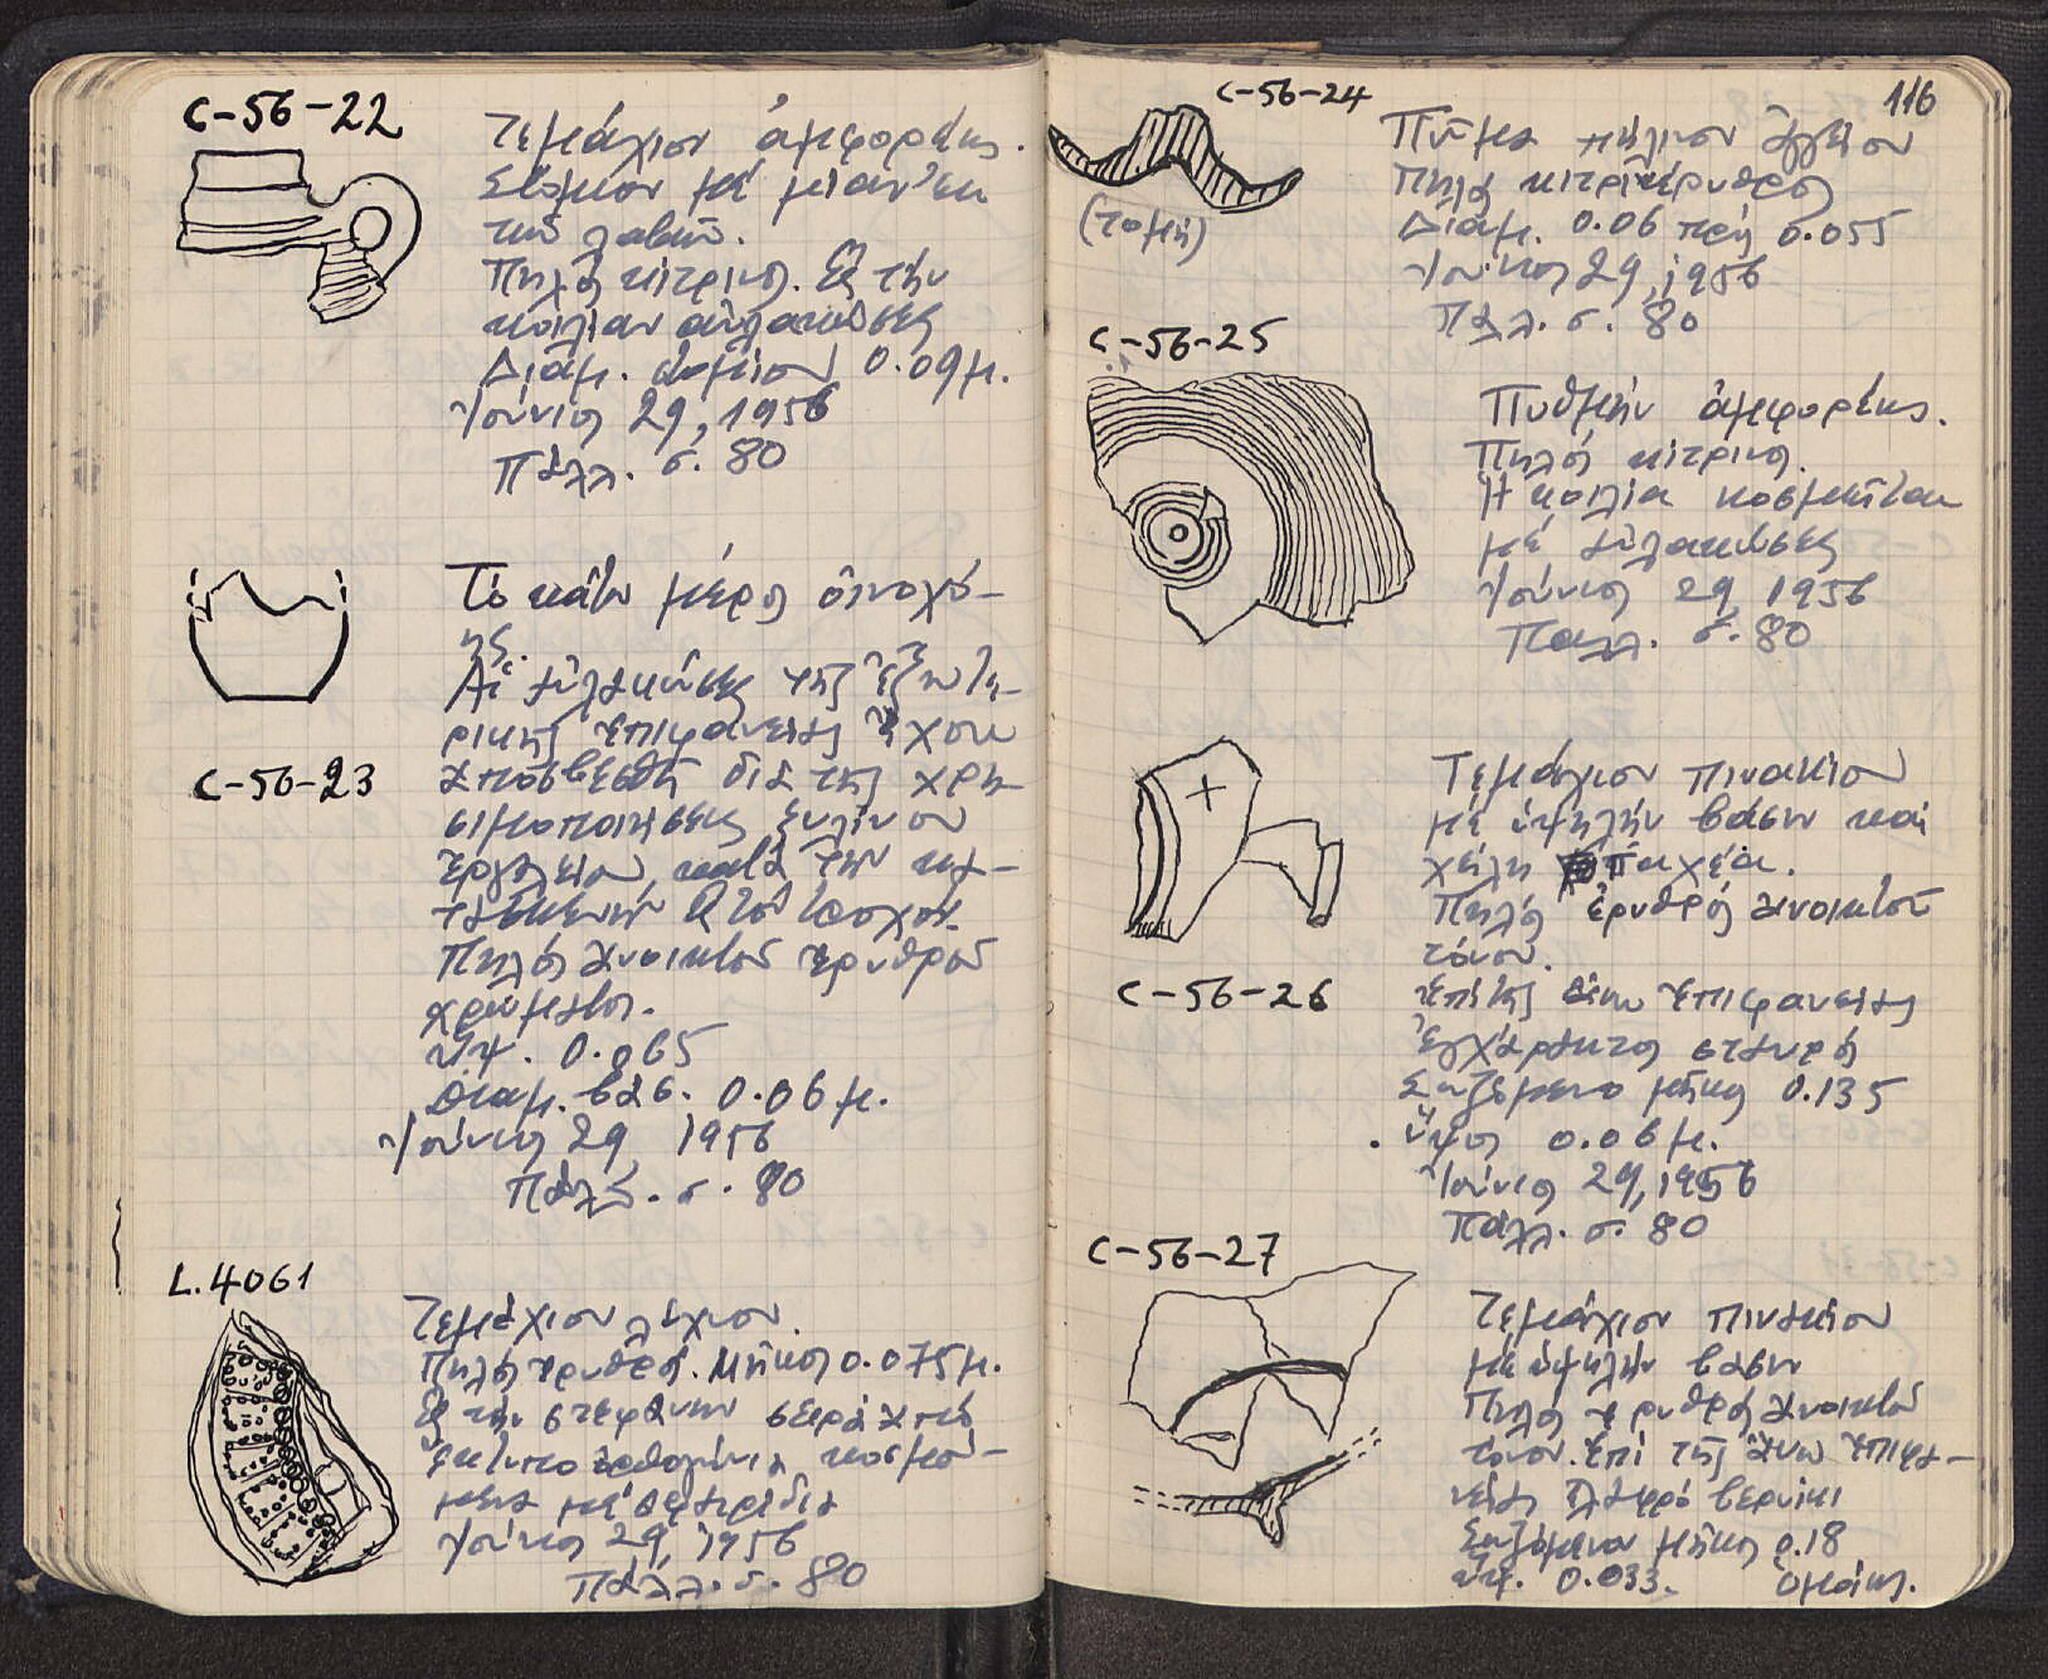 C-56-22
Τεμάχιον ἀμφορέως.
Στόμιον μέ μίαν ἐκ
τῶν λαβῶν.
Πηλός κίτρινος. Εἰς τήν
κοιλίαν αὐλακώσεις
Διάμ. στομίου 0.09 μ.
Ἰούνιος 29, 1956
Πάλλ. σ. 80
Τό κάτω μέρος οἰνοχό-
ης.
Αἱ αὐλακώσεις τῆς ἐξωτε-
ρικῆς ἐπιφανείας ἔχουν
ἀποσβεσθῆ διά τῆς χρη-
C-56-23
σιμοποιήσεως ξυλίνου
ἐργαλείου κατά τήν κα-
τασκευήν εἰς τόν τροχόν.
Πηλός ἀνοικτοῦ ἐρυθροῦ
χρώματος.
ὕψ. 0.065
Διαμ. βάσ. 0.06 μ.
Ἰούνιος 29 1956
Πάλλ. σ. 80
L.4061
Τεμάχιον λύχνου.
Πηλός ἐρυθρός. Μῆκος 0.075 μ.
Εἰς τήν στεφάνην σειρά ἀπό
ἔκτυπα ὀρθογώνια κοσμού-
μενα μέ σφαιρίδια
Ἰούνιος 29, 1956
Πάλλ. σ. 80
116
C-56-24
Πῶμα πηλίνου ἀγγείου
Πηλός κιτρινέρυθρος
(τομή)
Διάμ. 0.06 πρός 0.055
Ἰούνιος 29, 1956
Πάλλ. σ. 80
C-56-25
Πυθμήν ἀμφορέως.
Πηλός κίτρινος.
Ἡ κοιλία κοσμεῖται
μέ αὐλακώσεις
Ἰούνιος 29 1956
Πάλλ. σ. 80
Τεμάχιον πινακίου
μέ ὑψηλήν βάσιν καί
χείλη παχέα.
Πηλός ἐρυθρός ἀνοικτοῦ
τόνου.
C-56-26
Ἐπί τῆς ἄνω ἐπιφανείας
ἐγχάρακτος σταυρός
Σωζόμενο μῆκος 0.135
ὕψος 0.06 μ.
Ἰούνιος 29, 1956
Πάλλ. σ. 80
C-56-27
Τεμάχιον πινακίου
μέ ὑψηλήν βάσιν
Πηλός ἐρυθρός ἀνοικτοῦ
τόνου. Ἐπί τῆς ἄνω ἐπιφα-
νείας ἐλαφρό βερνίκι
Σωζόμενον μῆκος 0.18
ὕψ. 0.033. ὁμοίως.